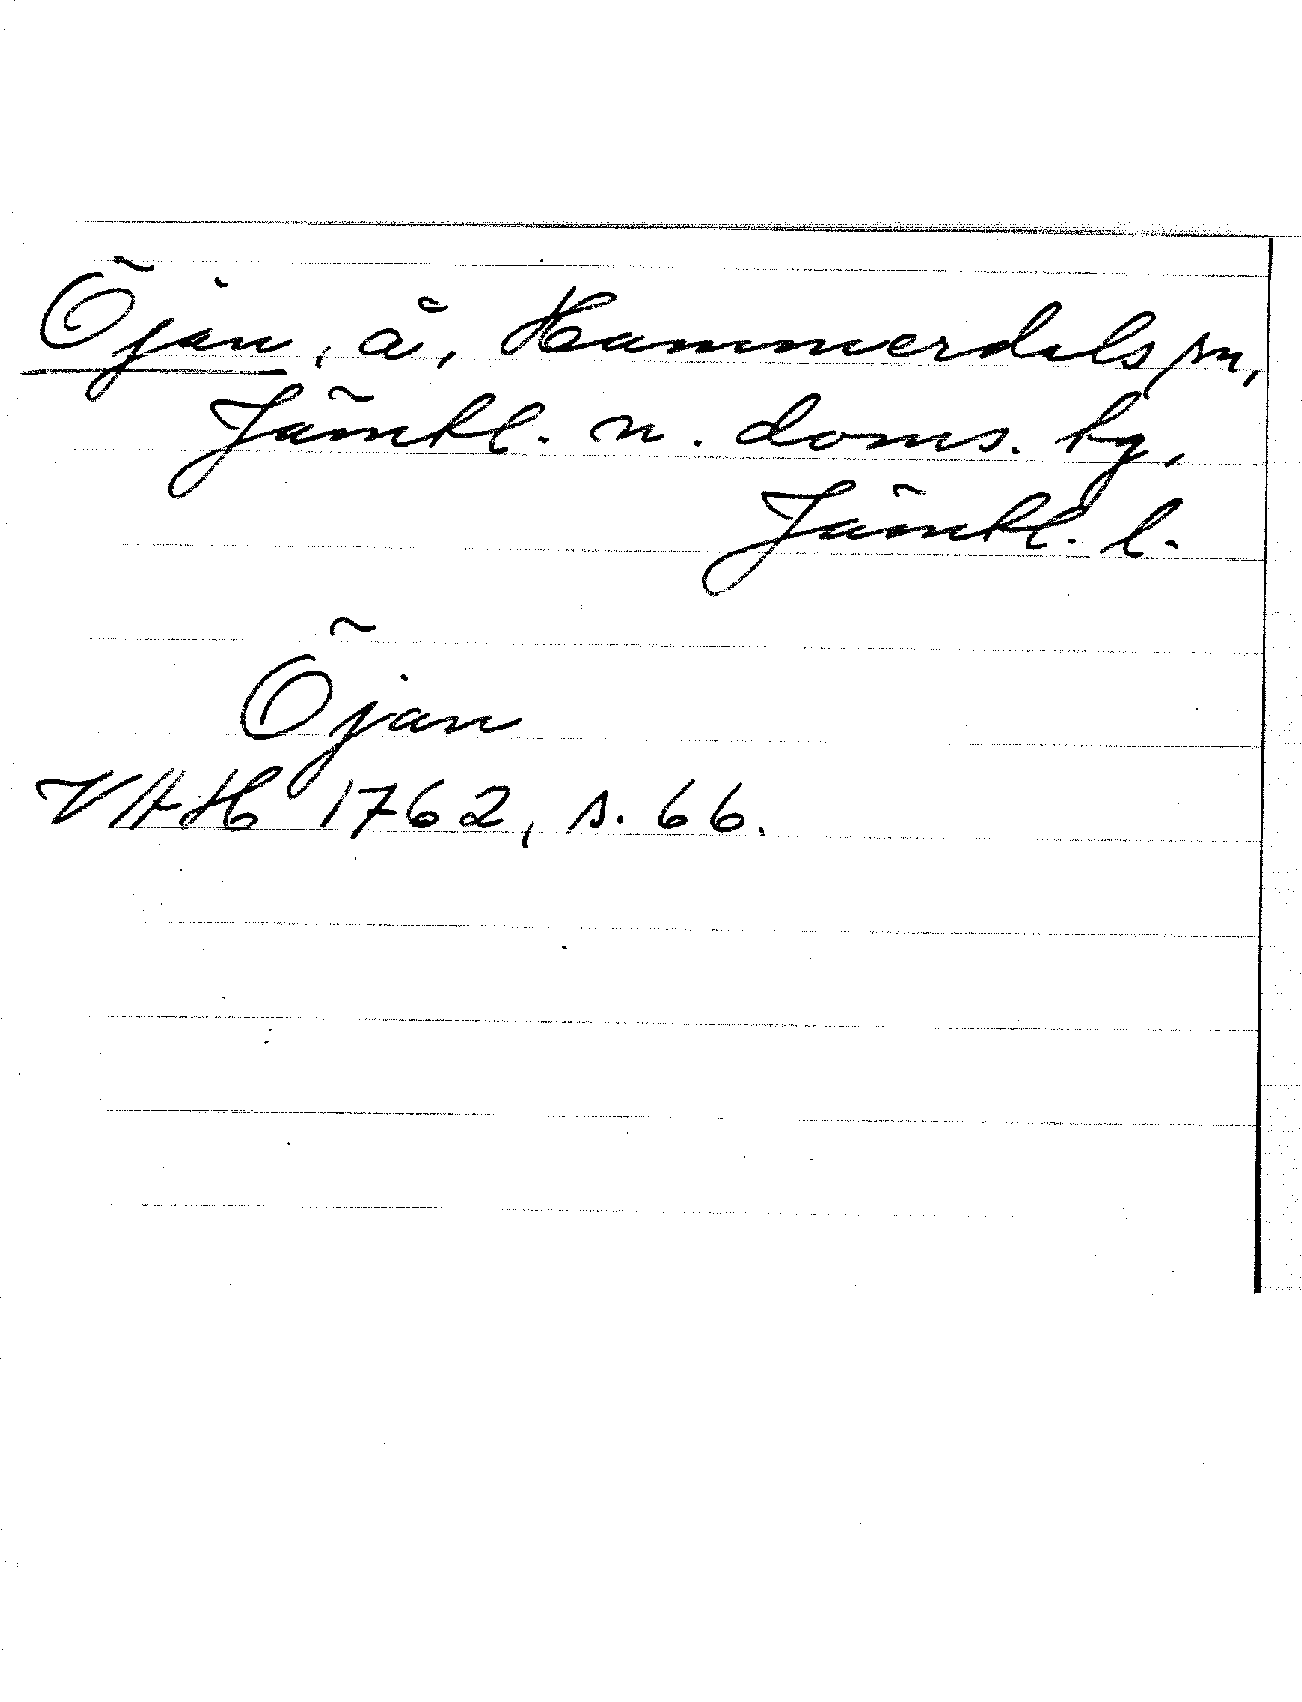 Öjan, å, Hammerdals sn,
Jämtl. n. doms. hg,
Jämtl. l.
Öjan
VAH 1762, s. 66.